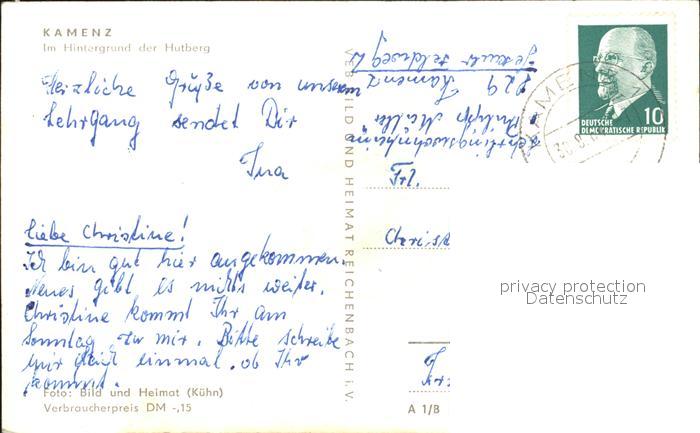 KAMENZ
Im Hintergrund der Hutberg
Herzliche Grüße von unserem
Lehrgang sendet Dir
Ina
liebe Christine!
Ich bin gut hier angekommen.
Neues gibt es nichts weiter.
Christine kommt Ihr am
Sonntag zu mir. Bitte schreibe
mir gleich einmal, ob Ihr
kommt.
Foto: Bild und Heimat (Kühn)
Verbraucherpreis DM -,15
VEB BILD UND HEIMAT REICHENBACH i. V.
Philipp Müller
829 Kamenz
Feldweg
10
DEUTSCHE
DEMOKRATISCHE REPUBLIK
KAMENZ
Frl.
Christ
privacy protection
Datenschutz
A 1/B